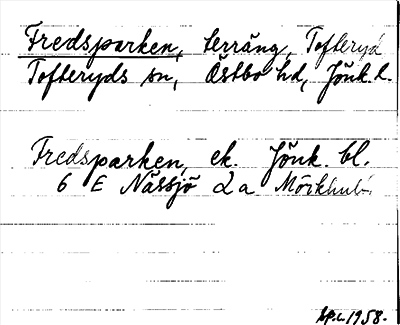 Fredsparken, terräng, Tofteryd
Tofteryds sn, Östbo hd, Jönk. l.
Fredsparken, ek. Jönk. bl.
6 E Nässjö 2a
1958.